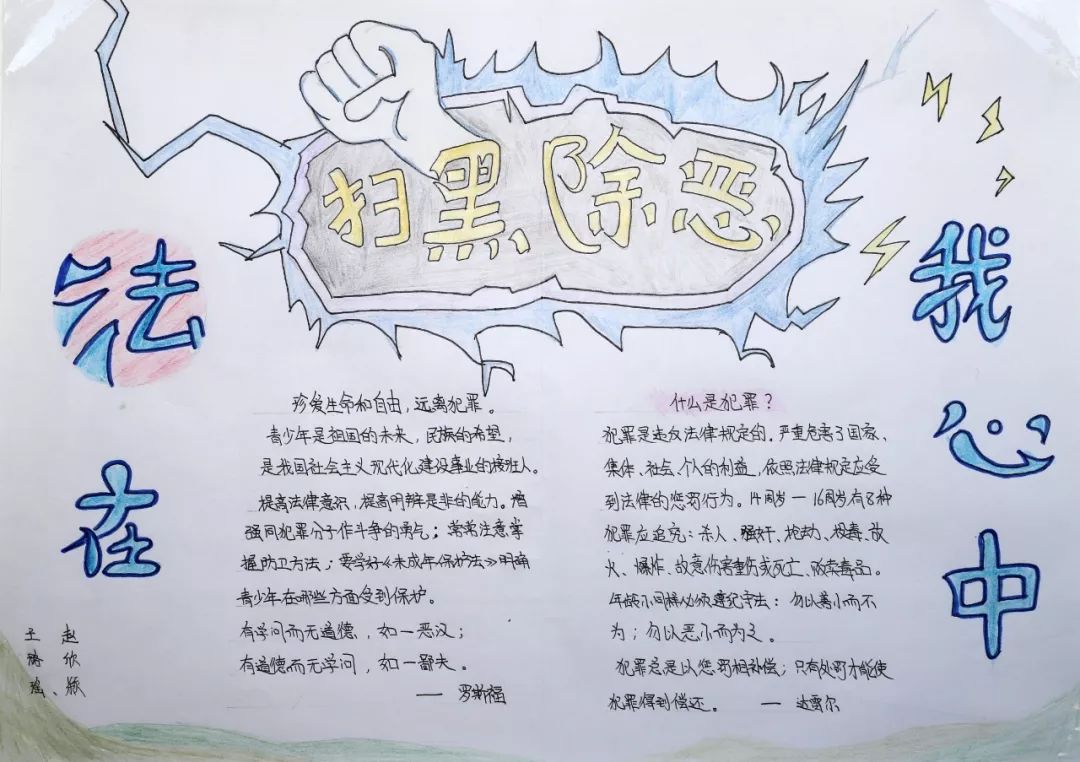 扫黑除恶
法在
我心中
珍爱生命和自由，远离犯罪。
青少年是祖国的未来，民族的希望，
是我国社会主义现代化建设事业的接班人。
提高法律意识，提高明辨是非的能力。增
强同犯罪分子作斗争的勇气；常常注意掌
握防卫方法；要学好《未成年保护法》明确
青少年在哪些方面受到保护。
有学问而无道德，如一恶汉；
有道德而无学问，如一鄙夫。
— 罗斯福
什么是犯罪？
犯罪是违反法律规定的。严重危害了国家、
集体、社会、个人的利益，依照法律规定应受
到法律的惩罚行为。14周岁一16周岁有8种
犯罪应追究：杀人、强奸、抢劫、投毒、放
火、爆炸、故意伤害重伤或死亡、贩卖毒品。
年龄不同样必须遵纪守法：勿以善小而不
为；勿以恶小而为之。
犯罪总是以惩罚相补偿；只有处罚才能使
犯罪得到偿还。 — 达雷尔
王 赵
欣
瑶、颖